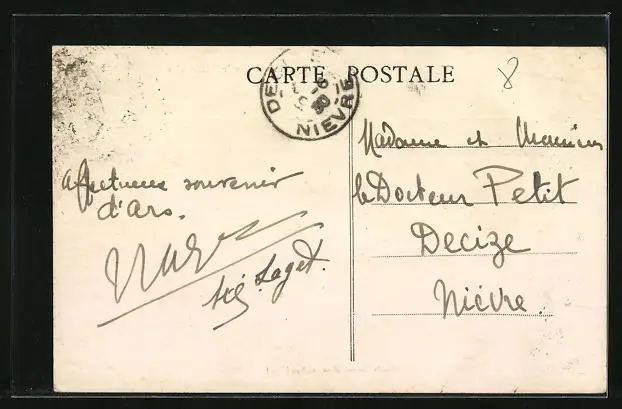 CARTE POSTALE
8
DE
30
NIEVRE
Affectueux souvenir
d'Ars.
Laget.
Madame et Monsieur
le Docteur Petit
Decize
Nièvre.